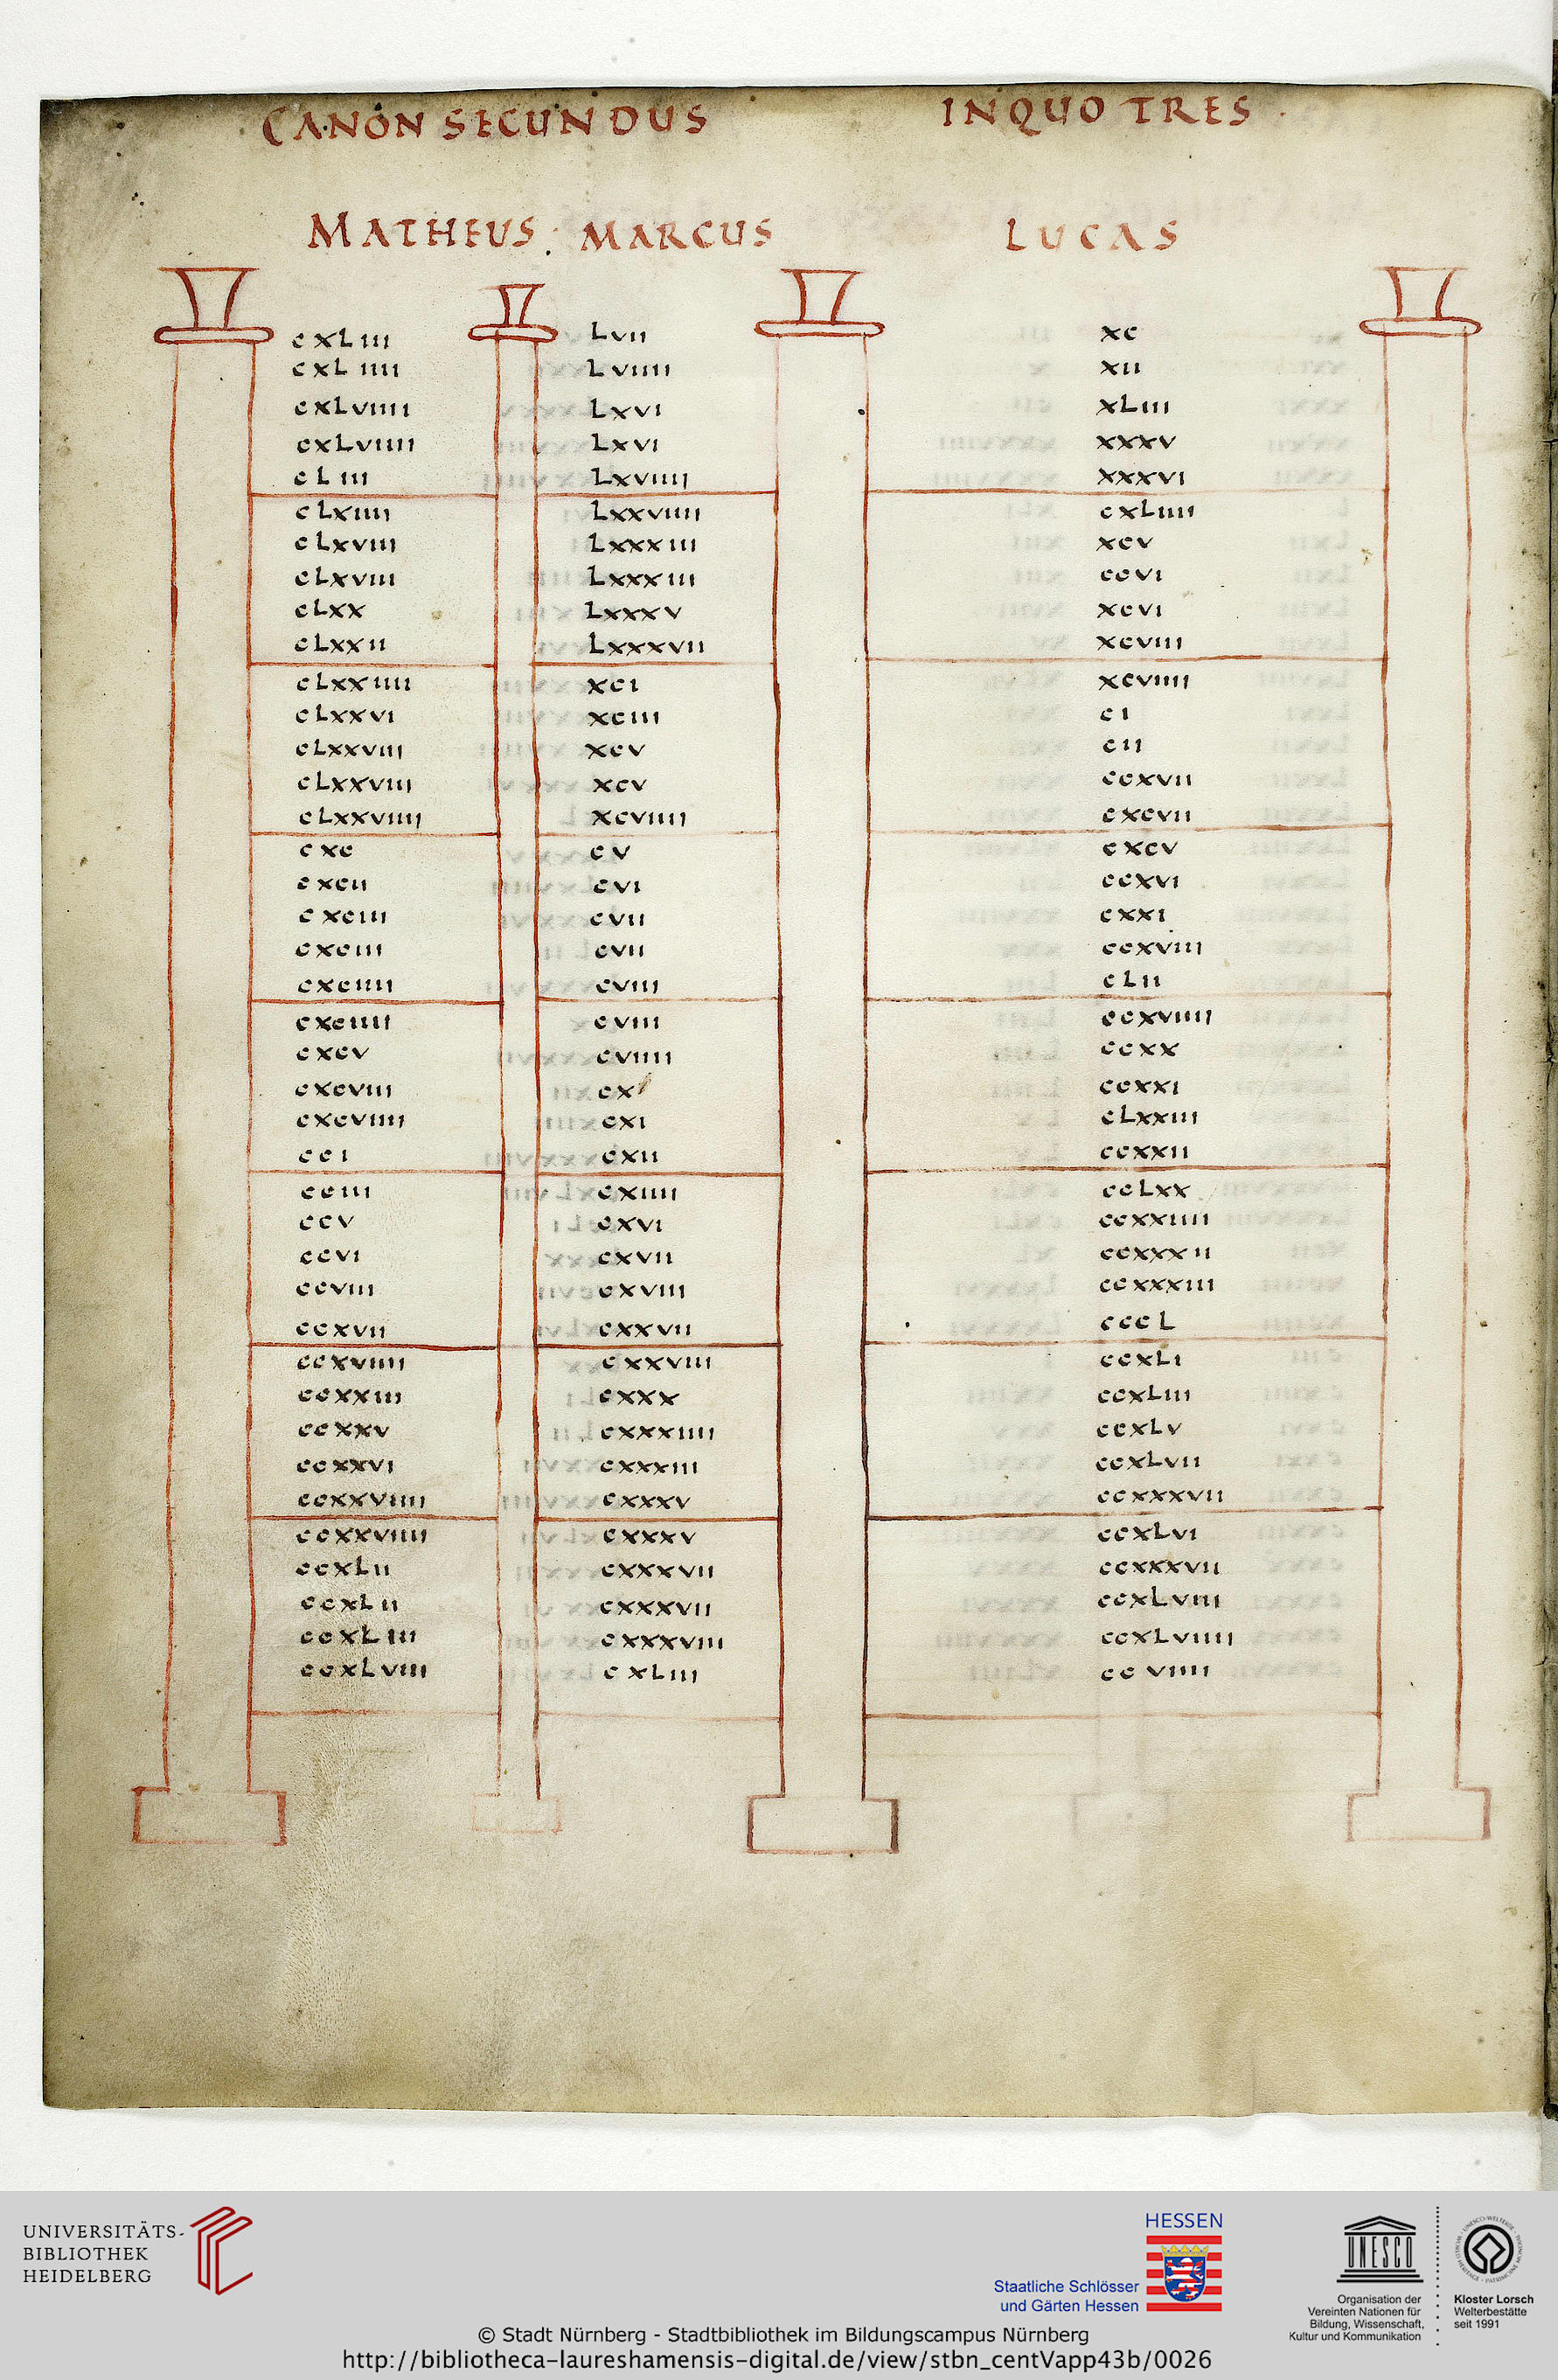 CANON SECUNDUS IN QUO TRES
MATHEUS MARCUS LUCAS
cxLiii Lvii xc
cxLiiii Lviiii xii
cxLviiii Lxvi xLiii
cxLviiii Lxvi xxxv
cLiii Lxviiii xxxvi
cLxiiii Lxxviiii cxLiiii
cLxviii Lxxxiii xcv
cLxviii Lxxxiii ccvi
cLxx Lxxxv xcvi
cLxxii Lxxxvii xcviii
cLxxiiii xci xcviiii
cLxxvi xciii ci
cLxxviii xcv cii
cLxxviii xcv ccxvii
cLxxviiii xcviiii cxcvii
cxc cv cxcv
cxcii cvi ccxvi
cxciii cvii cxxi
cxciii cvii ccxviii
cxciiii cviii cLii
cxciiii cviii ccxviiii
cxcv cviiii ccxx
cxcviii cx ccxxi
cxcviiii cxi cLxxiii
cci cxii ccxxii
cciii cxiiii ccLxx
ccv cxvi ccxxiiii
ccvi cxvii ccxxxii
ccviii cxviii ccxxxiii
ccxvii cxxvii cccL
ccxviiii cxxviii ccxLi
ccxxiii cxxx ccxLiii
ccxxv cxxxiiii ccxLv
ccxxvi cxxxiii ccxLvii
ccxxviiii cxxxv ccxxxvii
ccxxviiii cxxxv ccxLvi
ccxLii cxxxvii ccxxxvii
ccxLii cxxxvii ccxLviii
ccxLiii cxxxviii ccxLviiii
ccxLviii cxLiii ccviiii
UNIVERSITÄTS-
BIBLIOTHEK
HEIDELBERG
HESSEN
Staatliche Schlösser
und Gärten Hessen
UNESCO
Organisation der
Vereinten Nationen für
Bildung, Wissenschaft,
Kultur und Kommunikation
Kloster Lorsch
Welterbestätte
seit 1991
© Stadt Nürnberg - Stadtbibliothek im Bildungscampus Nürnberg
http://bibliotheca-laureshamensis-digital.de/view/stbn_centVapp43b/0026